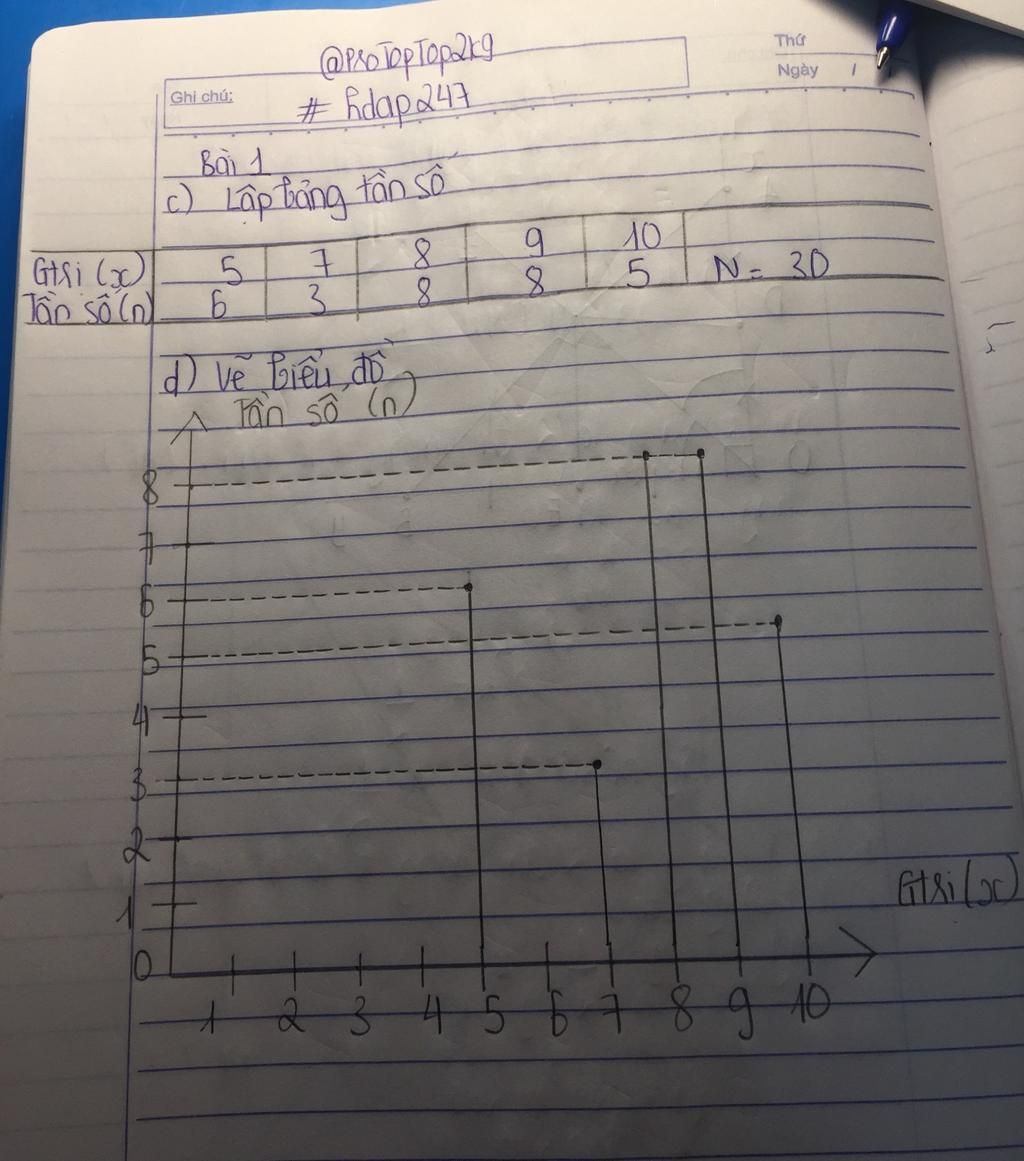 @ProTopTop2k9
Thứ
Ngày /
Ghi chú:
# hdap247
Bài 1
c) Lập bảng tần số
Gtri (x) 5 7 8 9 10
Tần số (n) 6 3 8 8 5 N = 30
d) Vẽ biểu đồ
Tần số (n)
8
7
6
5
4
3
2
1
Gtri (x)
0
1 2 3 4 5 6 7 8 9 10